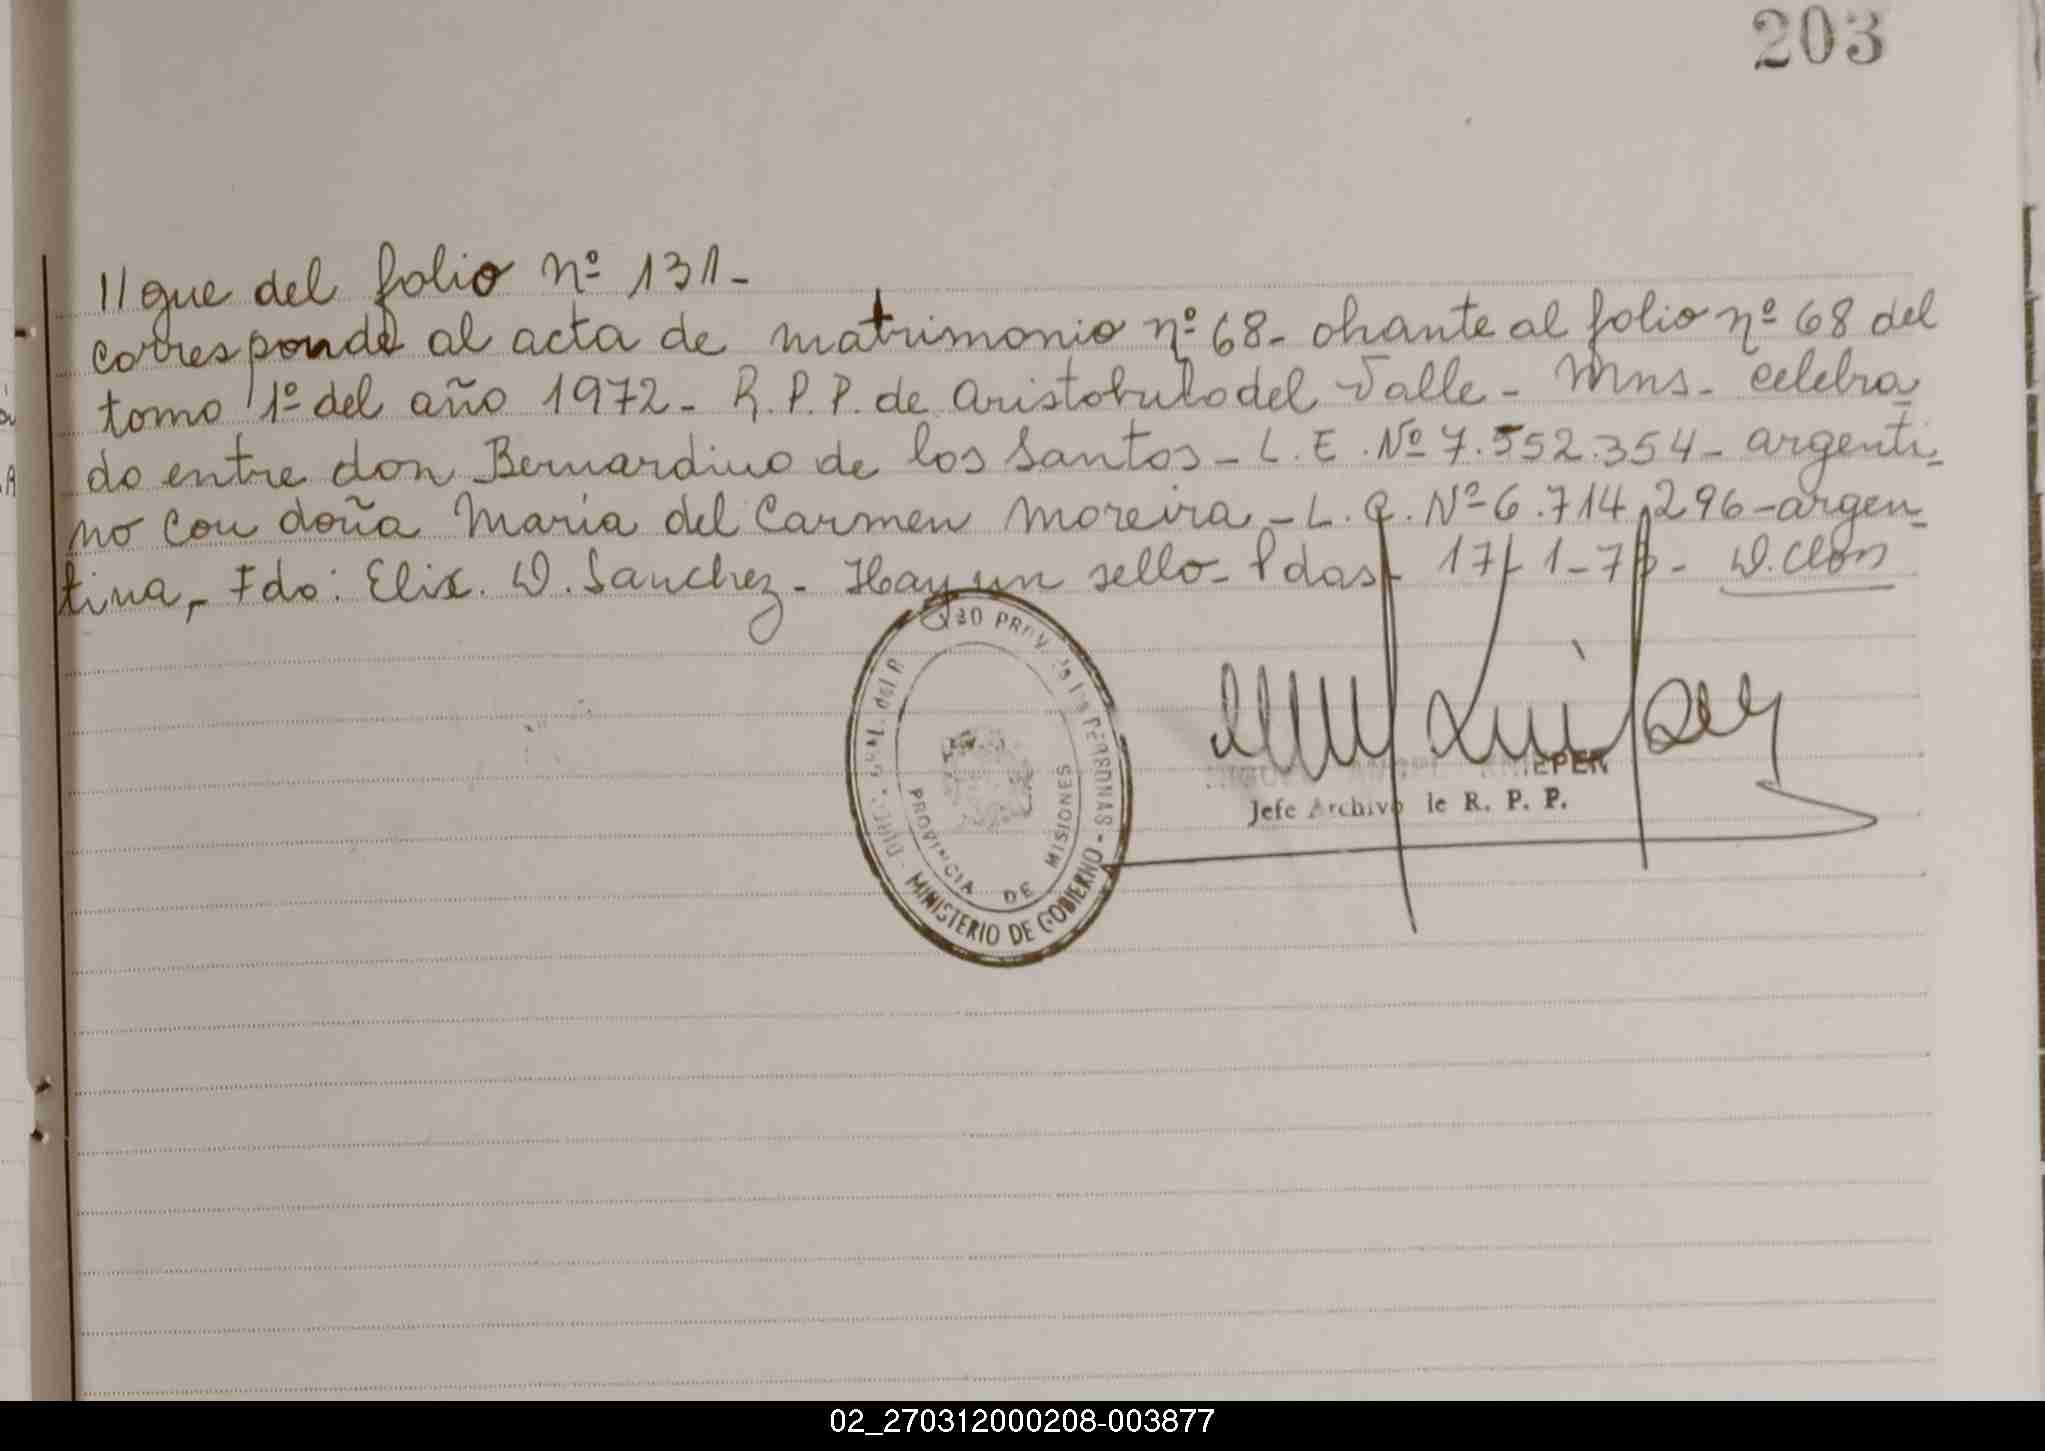 203
//gue del folio nº 131-
corresponde al acta de matrimonio nº 68- obrante al folio nº 68 del
tomo 1º del año 1972- R.P.P. de Aristobulo del Valle - Mns- celebra
do entre don Bernardino de los Santos - L.E. Nº 7.552.354- argenti-
no con doña Maria del Carmen Moreira - L.C. Nº 6.714.296- argen-
tina,- Fdo: Elix. D. Sanchez- Hay un sello- Pdas- 17-1-73- D. Clos
PROV. de las PERSONAS - MINISTERIO DE GOBIERNO
PROVINCIA DE MISIONES
Jefe Archivo de R. P. P.
02_270312000208-003877